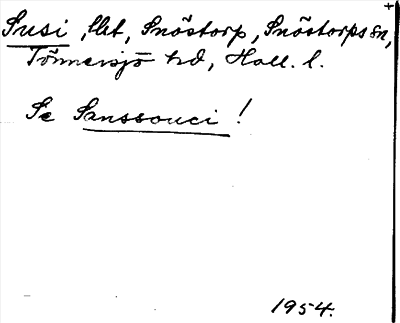 Susi, lht, Snöstorp, Snöstorps sn,
Tönnersjö hd, Hall. l.
Se Sanssouci!
1954.